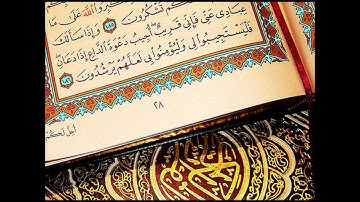 كَبِّرُوا اللَّهَ عَلَىٰ مَا
كُمْ تَشْكُرُونَ ١٨٥ وَإِذَا سَأَلَكَ
عِبَادِى عَنِّى فَإِنِّى قَرِيبٌ أُجِيبُ دَعْوَةَ الدَّاعِ إِذَا دَعَانِ
فَلْيَسْتَجِيبُوا لِى وَلْيُؤْمِنُوا بِى لَعَلَّهُمْ يَرْشُدُونَ ١٨٦
٢٨
أُحِلَّ لَكُمْ